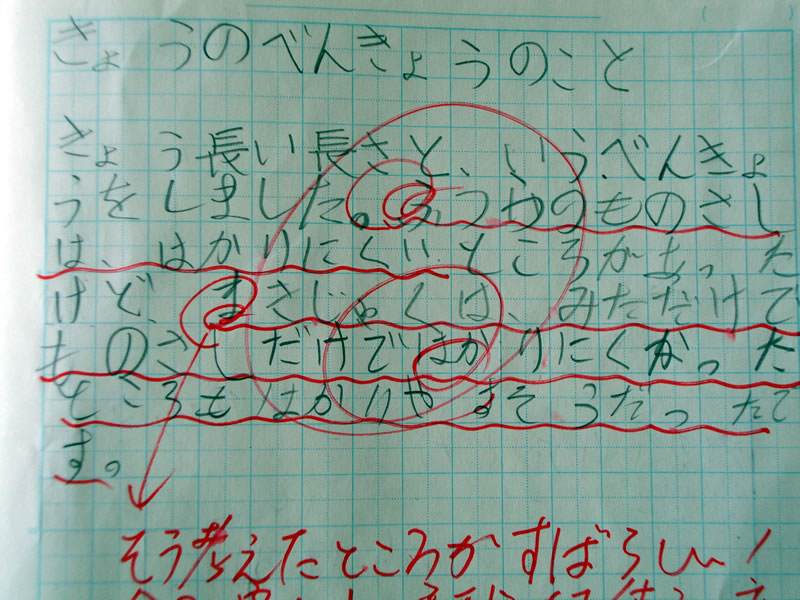 きょうのべんきょうのこと
きょう長い長さと、いうべんきょ
うをしました。ふつうのものさし
は、はかりにくいところがあった
けど、まきじゃくは、みただけで
ものさしだけではかりにくかった
ところもはかりやすそうだったで
す。
そう考えたところがすばらしい！